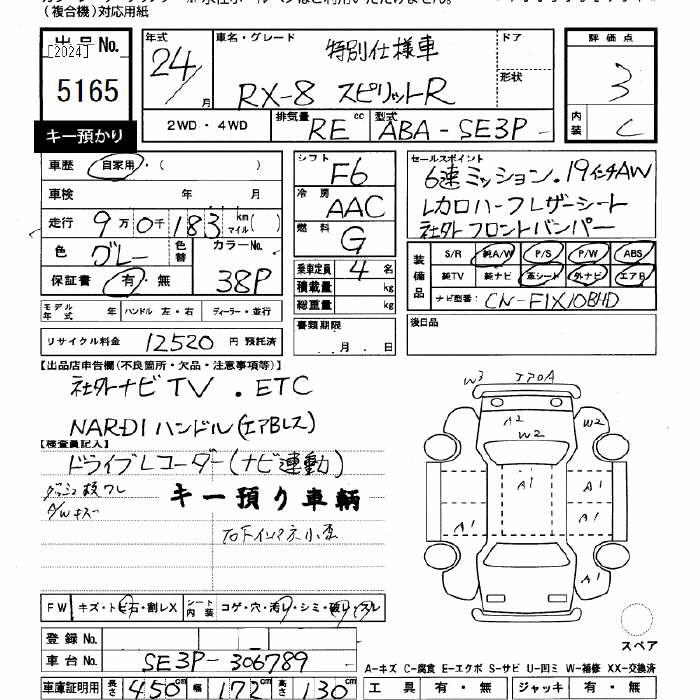 (複合機)対応用紙
出品No. 年式 車名・グレード 特別仕様車 ドア 評価点
[2024]
5165 24/月 RX-8 スピリットR 形状 3
キー預かり 2WD・4WD 排気量 RE cc 型式 ABA-SE3P 内装 C
車歴 自家用・( ) シフト F6 セールスポイント
車検 年 月 冷房 AAC 6速ミッション.19インチAW
走行 9万0千183 km マイル( ) 燃料 G レカロハーフレザーシート
社外フロントバンパー
色 グレー 色替 カラーNo. 38P 乗車定員 4名
保証書 有・無 積載量 kg
総重量 kg
装備品 S/R 純A/W P/S P/W ABS
純TV 純ナビ 革シート 外ナビ エアB
ナビ型番: CN-F1X10BHD
モデル年式 年 ハンドル 左・右 ディーラー・並行 書類期限 後日品
リサイクル料金 12520 円 預託済 . 月 . 日
【出品店申告欄(不良箇所・欠品・注意事項等)】
社外ナビTV.ETC
NARDIハンドル(エアBレス)
【検査員記入】
ドライブレコーダー(ナビ連動)
キー預り車輌
A/Wキズ
W3
A2 W2
W2
A1 A1
A1 A1
A1
FW キズ・トビ石・割レX シート内装 コゲ・穴・汚レ・シミ・破レ・スレ
スペア
登録No.
車台No. SE3P-306789
A-キズ C-腐食 E-エクボ S-サビ U-凹ミ W-補修 XX-交換済
車庫証明用 長さ 450cm 幅 172cm 高さ 130cm 工具 有・無 ジャッキ 有・無